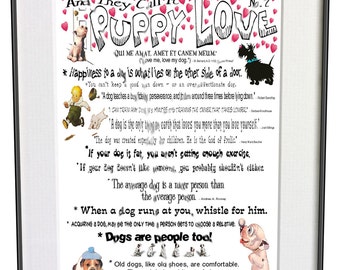 And They Call It
No. 2
PUPPY LOVE
QUI ME AMAT, AMET ET CANEM MEUM.
(Love me, love my dog.)
*Happiness to a dog is what lies on the other side of a door.
"You can't keep a good man down * or an overaffectionate dog.
"A dog teaches a boy fidelity, perseverance, and to turn around three times before lying down."
"A dog is the only thing on earth that loves you more than you love yourself."
"The dog was created especially for children. He is the God of frolic."
*If your dog is fat, you aren't getting enough exercise.
*If your dog doesn't like someone, you probably shouldn't either.
The average dog is a nicer person than
the average person.
* When a dog runs at you, whistle for him.
* ACQUIRING A DOG MAY BE THE ONLY TIME A PERSON GETS TO CHOOSE A RELATIVE.
* Dogs are people too!
* Old dogs, like old shoes, are comfortable.